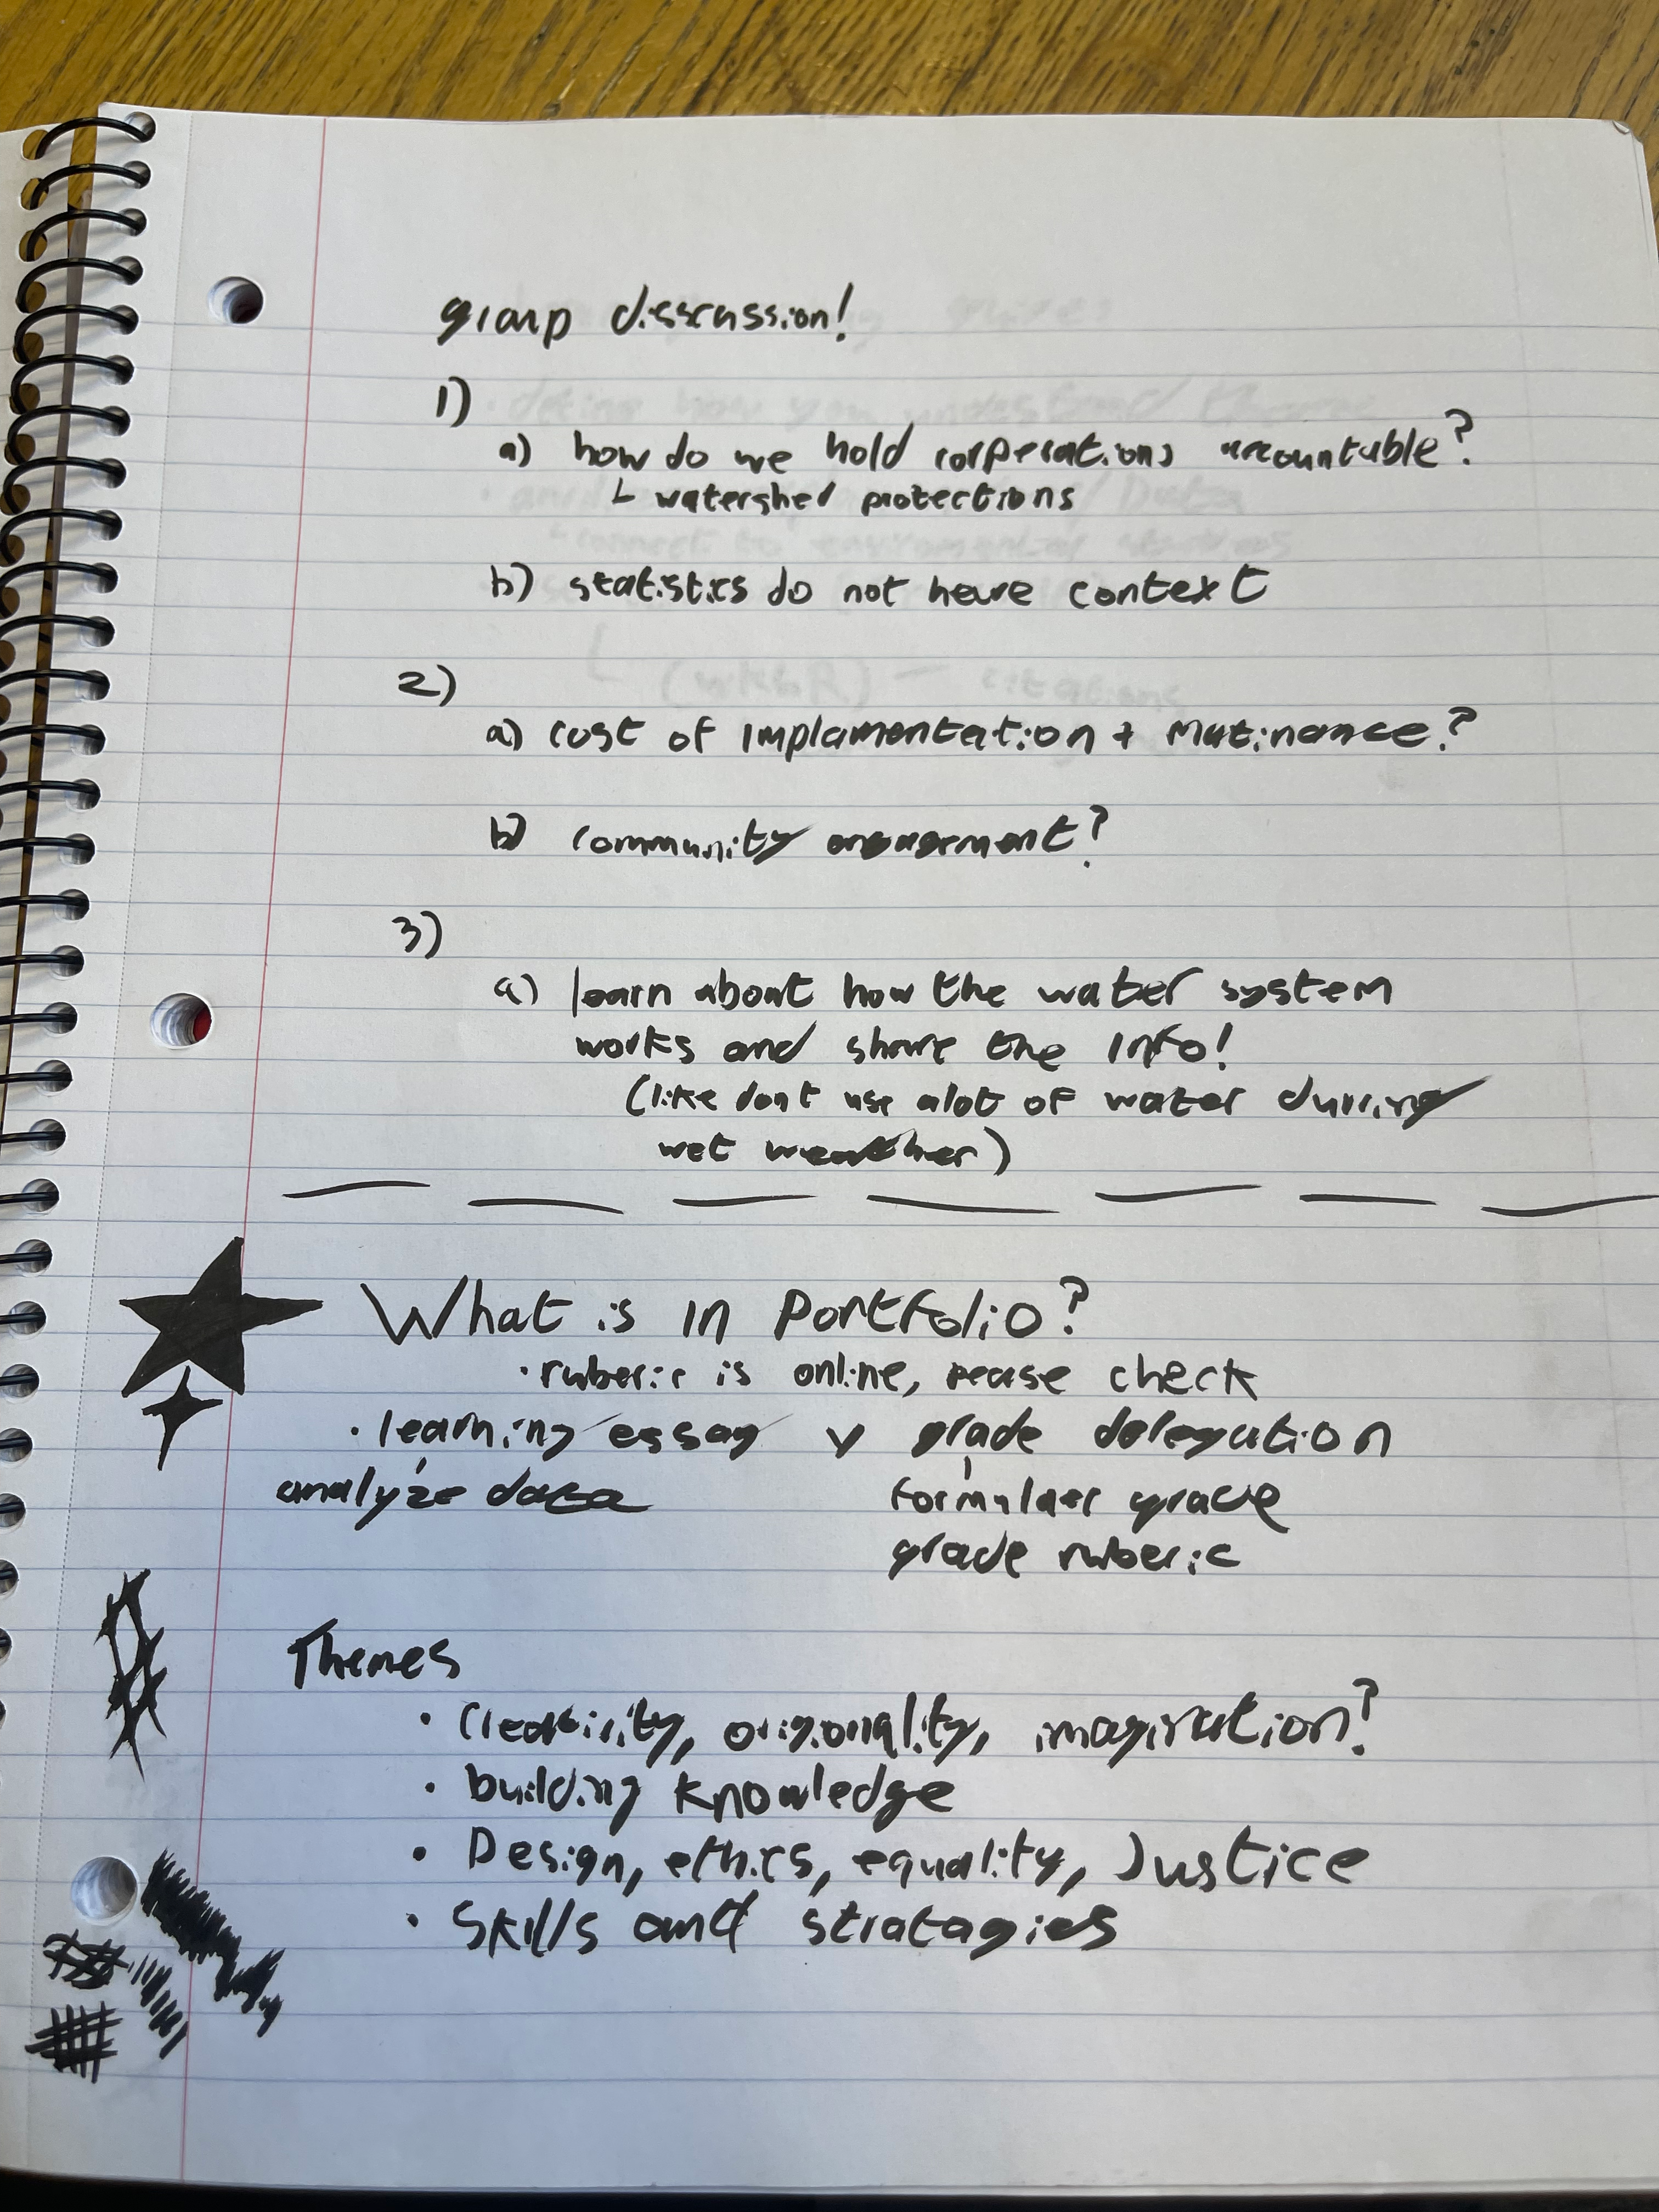 group disscussion!
1)
a) how do we hold corperations accountable?
└ watershed protections
b) statistics do not have context
2)
a) cost of implamentation + Matinance?
b) community engagement?
3)
a) learn about how the water system
works and share the info!
(like dont use alot of water durring
wet weather)
What is in Portfolio?
• ruberic is online, please check
• learning essay v grade delegation
analyze data formulaer grade
grade ruberic
Themes
• Creativity, origonality, imagination?
• building knowledge
• Design, ethics, equality, Justice
• Skills and stratagies